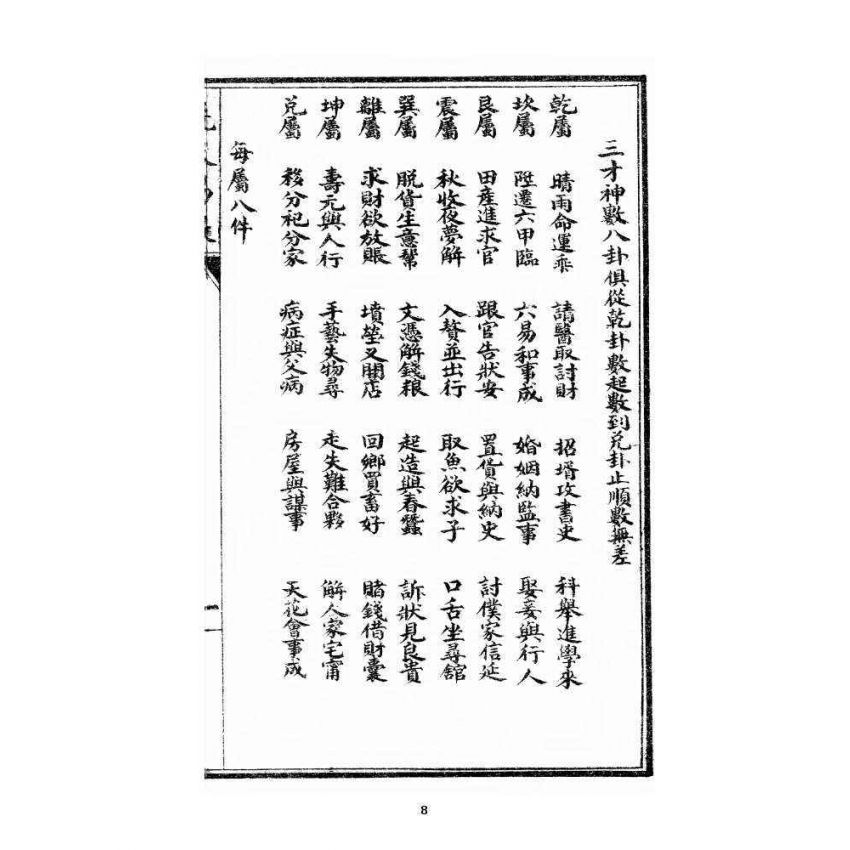 三才神數八卦俱從乾卦數起數到兌卦止順數無差
乾屬 晴雨命運乖 請醫取討財 招壻攻書史 科舉進學來
坎屬 陞遷六甲臨 六易和事成 婚姻納監事 娶妾與行人
艮屬 田產進求官 跟官告狀安 置貨與納吏 討僕家信延
震屬 秋收夜夢解 入贅並出行 取魚欲求子 口舌坐尋舘
巽屬 脫貨生意幫 文憑解錢粮 起造與春蠶 訴狀見良貴
離屬 求財欲放賬 墳塋又開店 回鄉買畜好 賭錢借財囊
坤屬 壽元與人行 手藝失物尋 走失難合夥 解人家宅甯
兌屬 移分祀分家 病症與父病 房屋與謀事 天花會事成
每屬八件
一
8